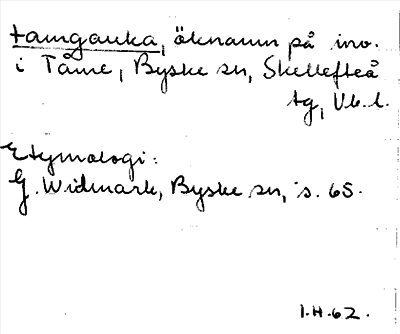 tamgauka, öknamn på inv.
i Tåme, Byske sn, Skellefteå
tg, Vb.l.
Etymologi:
G. Widmark, Byske sn, s. 65.
1.H.62.